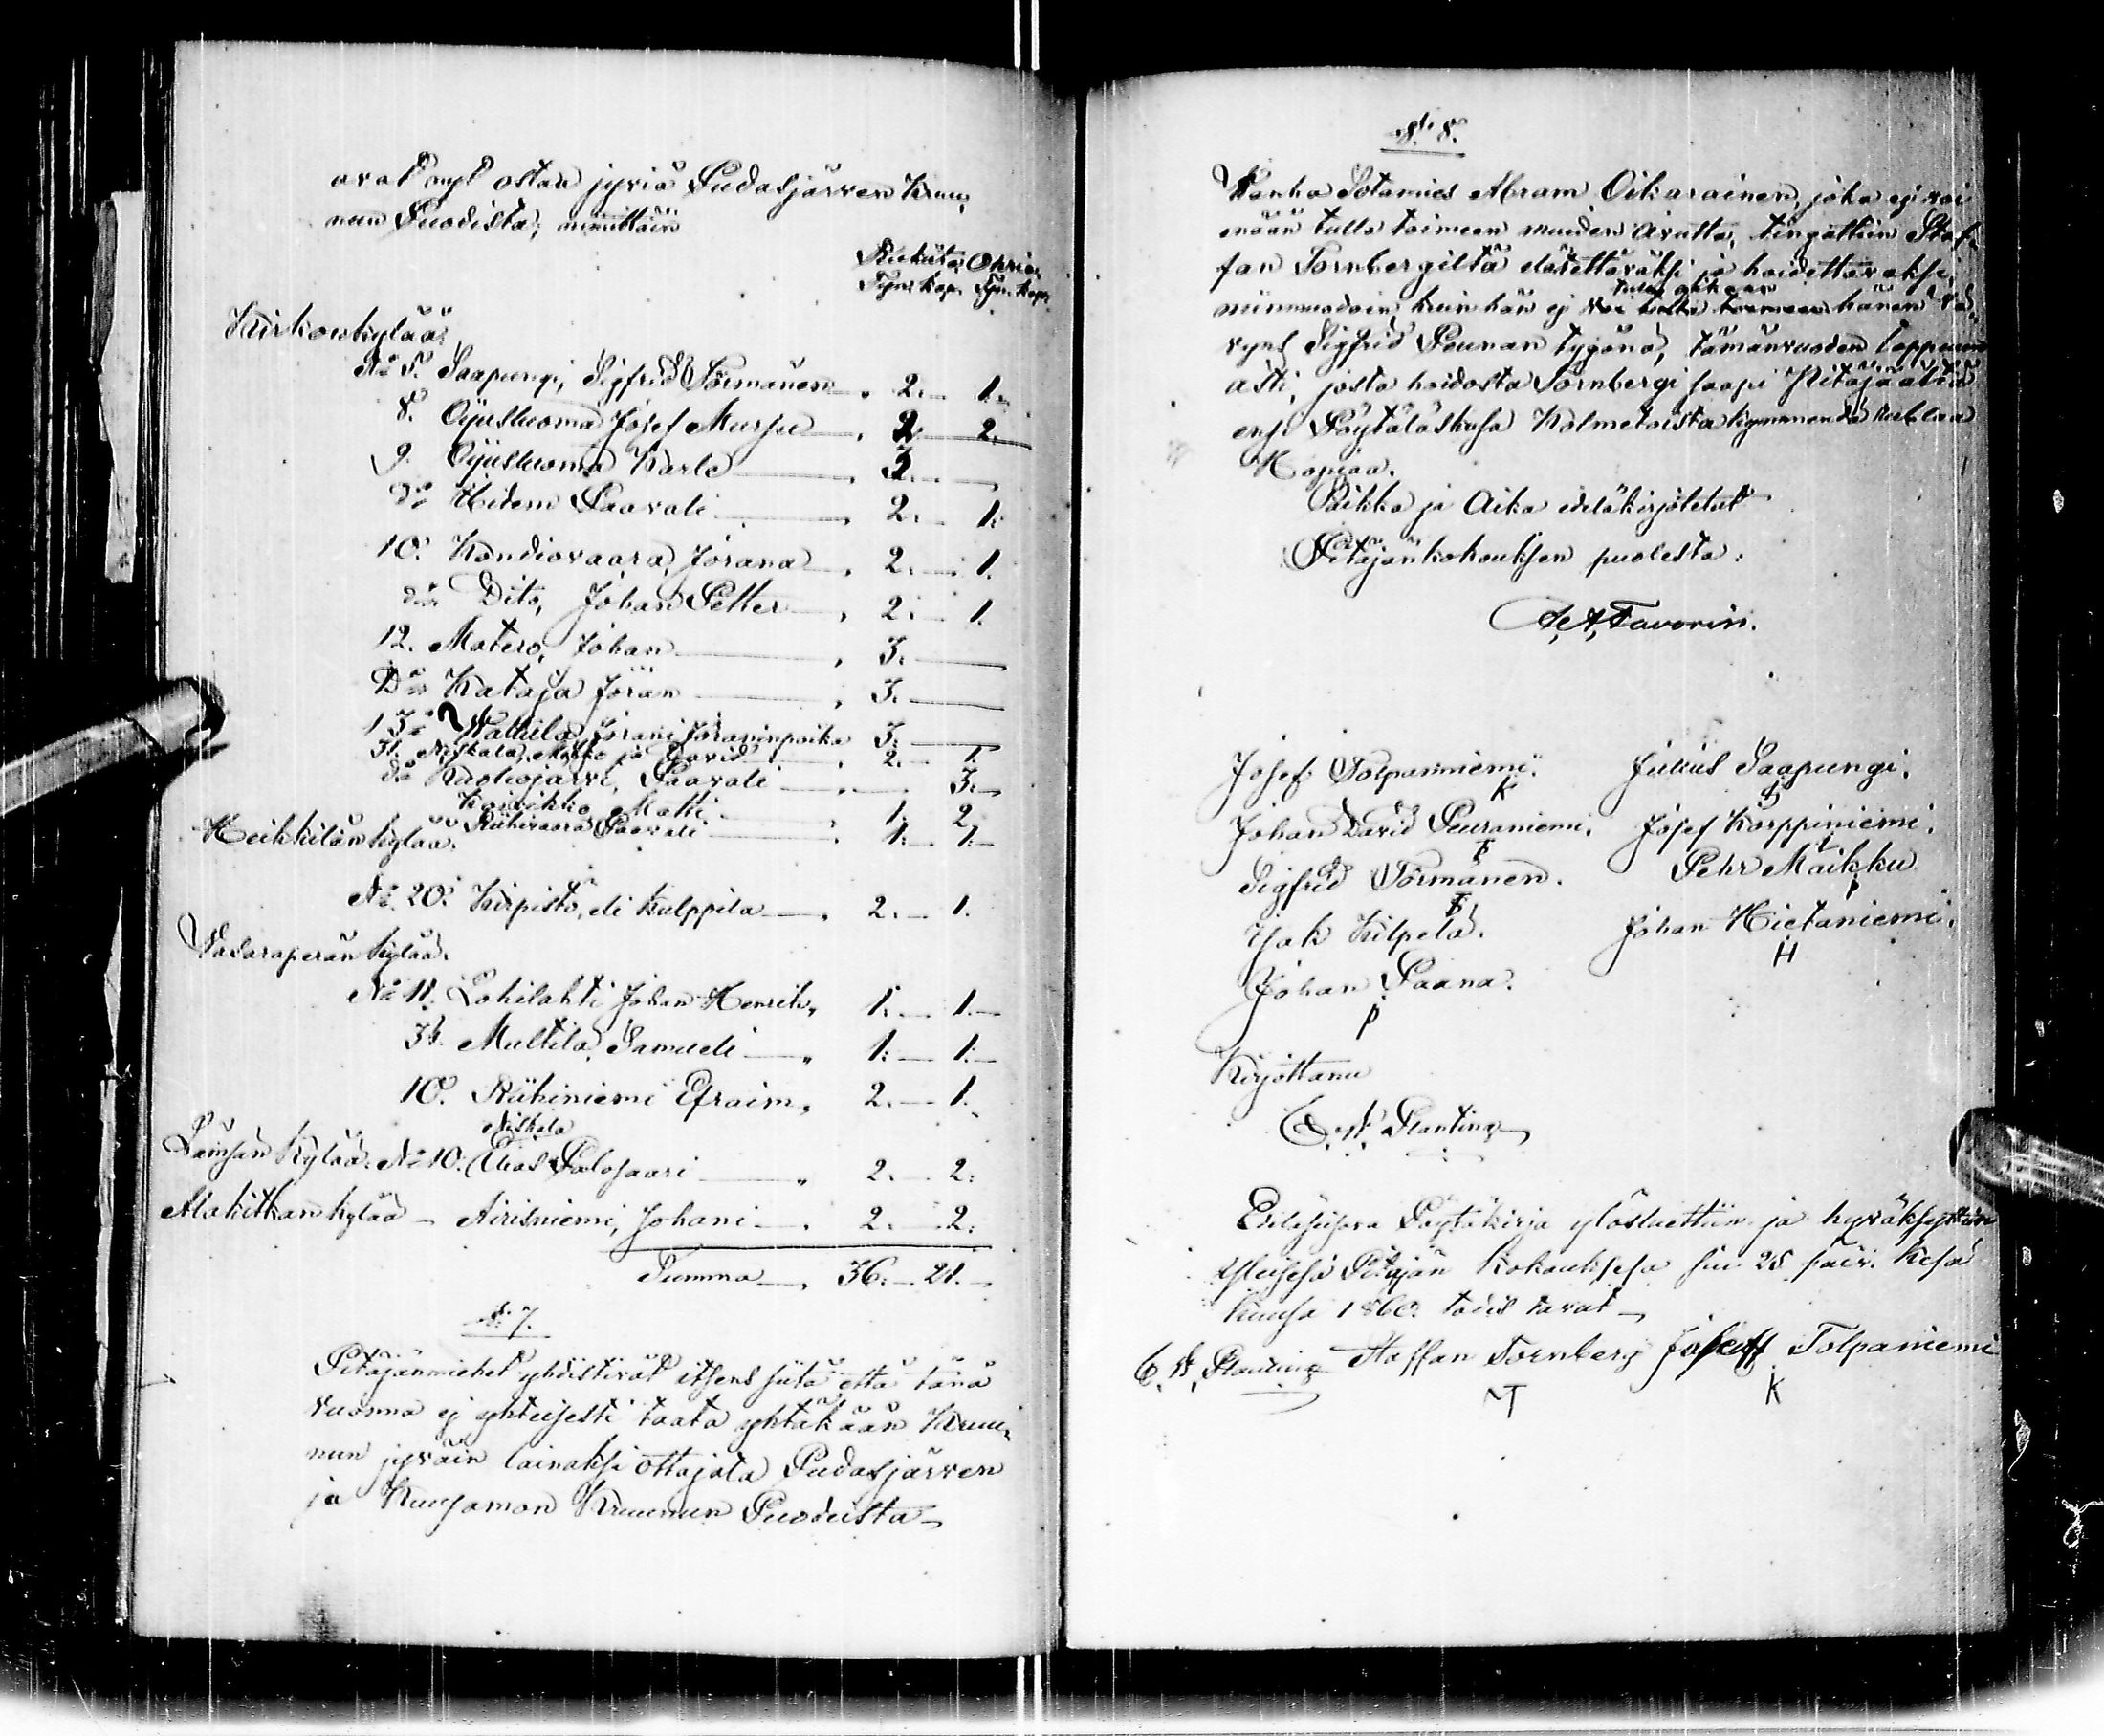 avat nyt ostaa jyviä Pudasjärven Kruu,
nun Puodista, nimittäin
Rukiita, Ohria,
Tyn: kap. Tyn. kap.
Kirkonkylää:
No 5. Saapungi, Sigfrid Törmänen 2. 1.
8. Öijusluoma Josef Mursu 2. 2.
9. Öijusluoma Karlo 3.
do Hidem Paavali 2. 1.
10. Kondiovaara, Jörana 2. 1.
do Dito, Johan Petter 2. 1.
12. Matero, Johan 3.
Do Kataja Jöran 3.
13. Wattula, Jörani Jöraninpoika 3.
31. Niskala, Mikko ja David 2. 1.
do Kuoliojärvi, Paavali 3.
Koivikko Matti 1. 2.
Riihivaara Paavali 1. 1.
Heikkilän kylää.
No 20. Kirpistö, eli Kulppila 2. 1.
Vasaraperän kylää.
No 11. Lohilahti Johan Henrik, 1. 1.
34. Multila, Samueli 1. 1.
10. Rähiniemi Efraim, 2. 1.
Niskala
Lämsän Kylää. No 10. Elias Palosaari 2. 2.
Alakitkan kylää Airisniemi, Johani 2. 2.
Summa 36. 21.
§. 7.
Pitäjänmiehet yhdistivät itsens siitä että tänä
vuonna ej yhteisesti taata yhtäkään Kruu,
nun jyväin lainaksi ottajata Pudasjärven
ja Kuusamon Kruunun Puodista
§. 8.
Vanha Sotamies Abram Oikarainen, joka ej voi
enään tulla toimeen muiden avutta, tingattiin Staf,
fan Tornbergiltä elätettäväksi ja hoidettavaksi,
niinmuodoin kuin hän ej voi tulla toimeen hänen Vä,
vyns Sigfrid Peuran tygönä, tämänvuoden loppuun
asti, josta hoidosta Tornbergi saapi Pitäjäältä
ensi Pöytäläskusa Kolmetoista kymmendä rublaa
Hopiaa.
Paikka ja Aika edeläkirjotetut
Pitäjänkokouksen puolesta:
A, A, Favorin.
Josef Tolpanniemi. Julius Saapungi.
K
Johan David Peuraniemi. Josef Korppiniemi.
Sigfrid Törmänen. Pehr Maikku
Isak Kilpelä. Johan Hietaniemi.
H
Johan Paana.
P
Kirjottanu
C. W. Planting
Edeläseisova Pöytäkirja ylösluettiin ja hyväksyttiin
Yleisesä Pitäjän Kokouksesa sin 25 päiv. Kesä
kuusa 1860. todistavat
C. W. Planting Staffan Tornberg Joseff Tolpaniemi
NT K